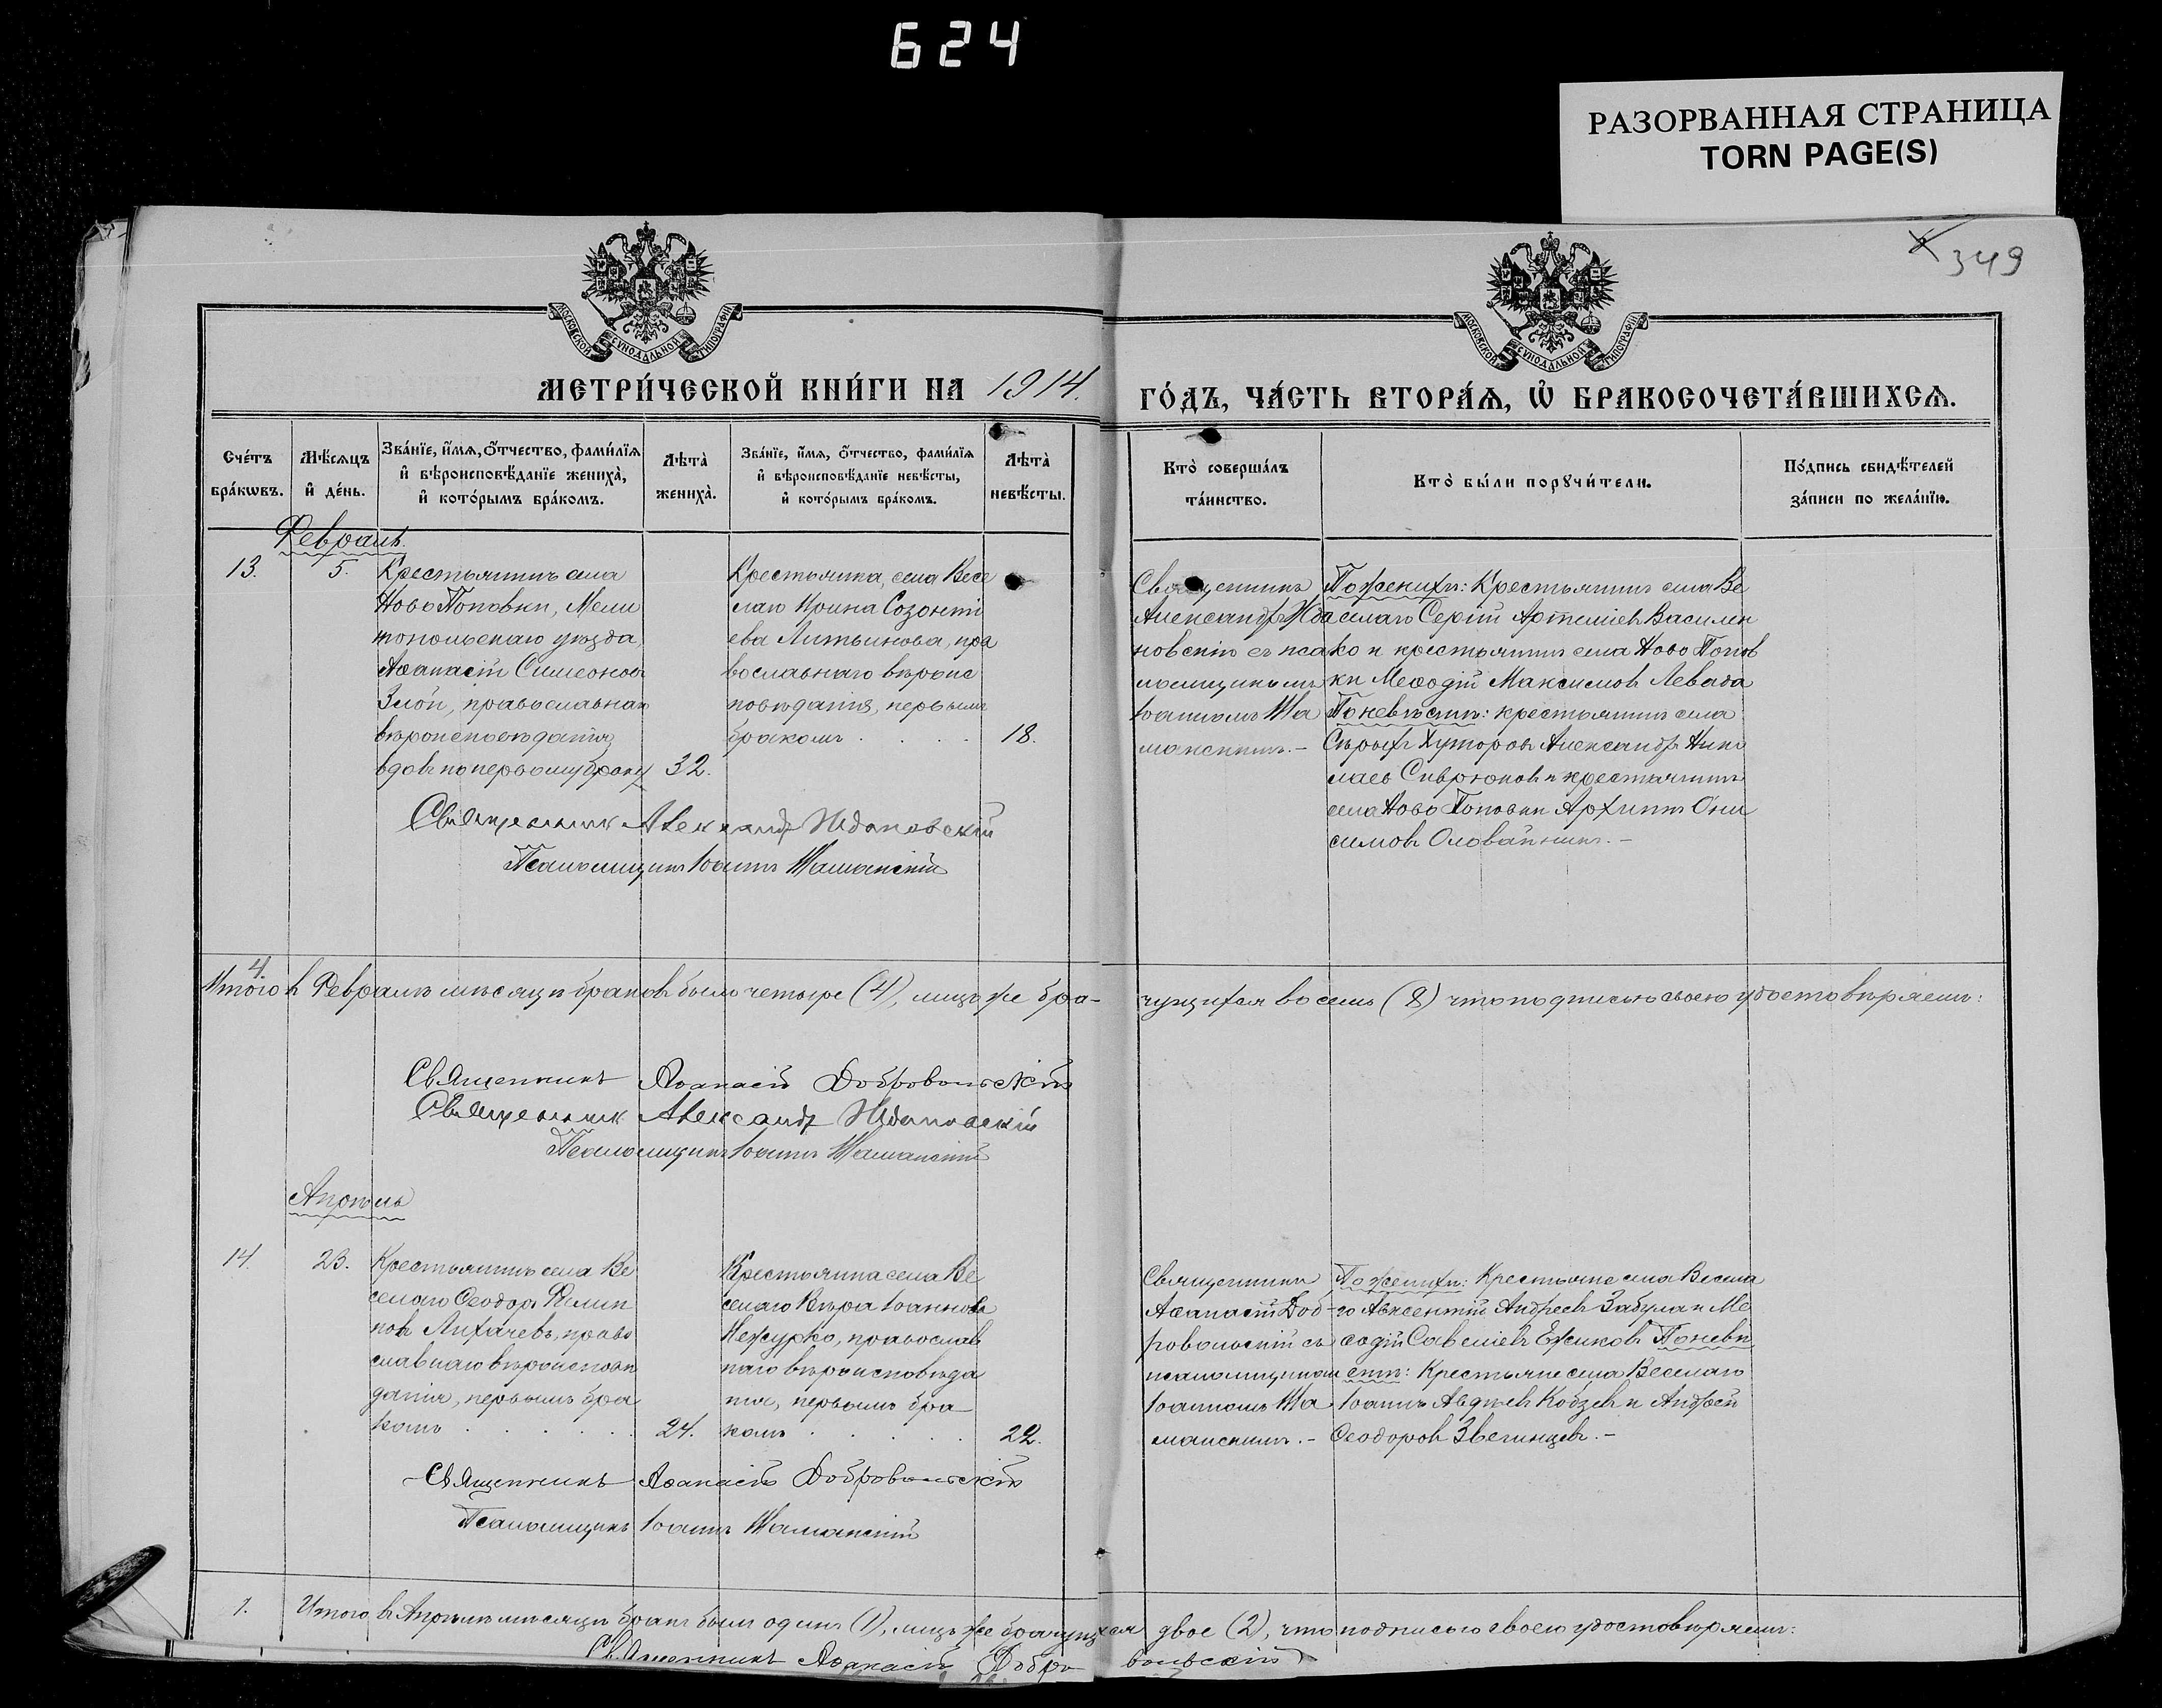 624
РАЗОРВАННАЯ СТРАНИЦА
TORN PAGE(S)
349
МОСКОВСКОЙ СѴНОДАЛЬНОЙ ТИПОГРАФІИ
МОСКОВСКОЙ СѴНОДАЛЬНОЙ ТИПОГРАФІИ
МЕТРИ́ЧЕСКОЙ КНИ́ГИ НА 1914.
ГО́ДЪ, ЧА́СТЬ ВТОРА́Ѧ, Ѡ҆ БРАКОСОЧЕТА́ВШИХСѦ.
Сче́тъ
бра́кѡвъ.
Мѣ́сяцъ
и҆ де́нь.
Зва́нїе, и҆́мѧ, ѻ҆́тчество, фами́лїѧ
и҆ вѣроисповѣ́данїе жениха̀,
и҆ кото́рымъ бра́комъ.
Лѣта̀
жениха̀.
Зва́нїе, и҆́мѧ, ѻ҆́тчество, фами́лїѧ
и҆ вѣроисповѣ́данїе невѣ́сты,
и҆ кото́рымъ бра́комъ.
Лѣта̀
невѣ́сты.
Кто̀ соверша́лъ
та́инство.
Кто̀ бы́ли порꙋчи́тели.
По́дпись свидѣ́телей
за́писи по жела́нїю.
Февраль.
13.
5.
Крестьянинъ села
Ново Поповки, Мели
топольскаго уѣзда,
Аѳанасій Симеоновъ
Злой, православнаго
вѣроисповѣданія,
вдовъ по первому браку
32.
Крестьянка, села Весе
лаго Ирина Созонті
ева Литвинова, пра
вославнаго вѣроис
повѣданія, первымъ
бракомъ . . . .
18.
Священникъ
Александръ Жда
новскій съ пса
ломщикомъ
Іоанномъ Ша
манскимъ. –
По женихѣ: Крестьянинъ села Ве
селаго Сергій Артеміевъ Василен
ко и крестьянинъ села Ново Попов
ки Меѳодій Максимовъ Левада
По невѣстѣ: крестьянинъ села
Сѣрыхъ Хуторовъ Александръ Нико
лаевъ Сиврюковъ и крестьянинъ
села Ново Поповки Архипъ Они
симовъ Оловайникъ. –
Священникъ Александръ Ждановскій
Псаломщикъ Іоаннъ Шаманскій
4.
Итого въ Февралѣ мѣсяцѣ браковъ было четыре (4), лицъ же бра-
чущихся восемь (8) что подписью своею удостовѣряемъ:
Священникъ Аѳанасій Добровольскій
Священникъ Александръ Ждановскій
Псаломщикъ Іоаннъ Шаманскій
Апрѣль
14.
23.
Крестьянинъ села Ве
селаго Ѳеодоръ Филип
повъ Лихачевъ, право
славнаго вѣроисповѣ
данія, первымъ бра
комъ . . . . .
24.
Крестьянка села Ве
селаго Вѣра Іоаннова
Нежурко, православ
наго вѣроисповѣда
нія, первымъ бра
комъ . . . . .
22.
Священникъ
Аѳанасій Доб-
ровольскій съ
псаломщикомъ
Іоанномъ Ша
манскимъ. –
По женихѣ: Крестьяне села Весела
го Авксентій Андреевъ Забула и Ме
ѳодій Савеліевъ Ежиковъ По невѣ
стѣ: Крестьяне села Веселаго
Іоаннъ Авдѣевъ Кобзевъ и Андрей
Ѳеодоровъ Звегинцевъ. –
Священникъ Аѳанасій Добровольскій
Псаломщикъ Іоаннъ Шаманскій
1.
Итого въ Апрѣлѣ мѣсяцѣ бракъ былъ одинъ (1), лицъ же брачущихся двое (2), что подписью своею удостовѣряемъ:
Священникъ Аѳанасій Добровольскій